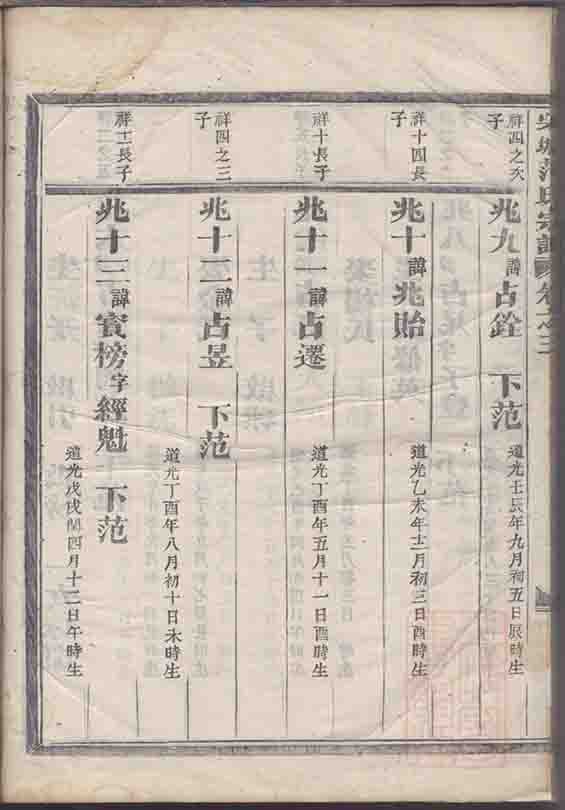 祥四之次子
兆九諱占銓 下范
道光壬辰年九月初五日辰時生
祥十四長子
兆十諱兆貽
道光乙未年十二月初三日酉時生
祥十長子
兆十一諱占遷
道光丁酉年五月十一日酉時生
祥四之三子
兆十二諱占昱 下范
道光丁酉年八月初十日未時生
祥十二長子
兆十三諱賓榜字經魁 下范
道光戊戌閏四月十二日午時生